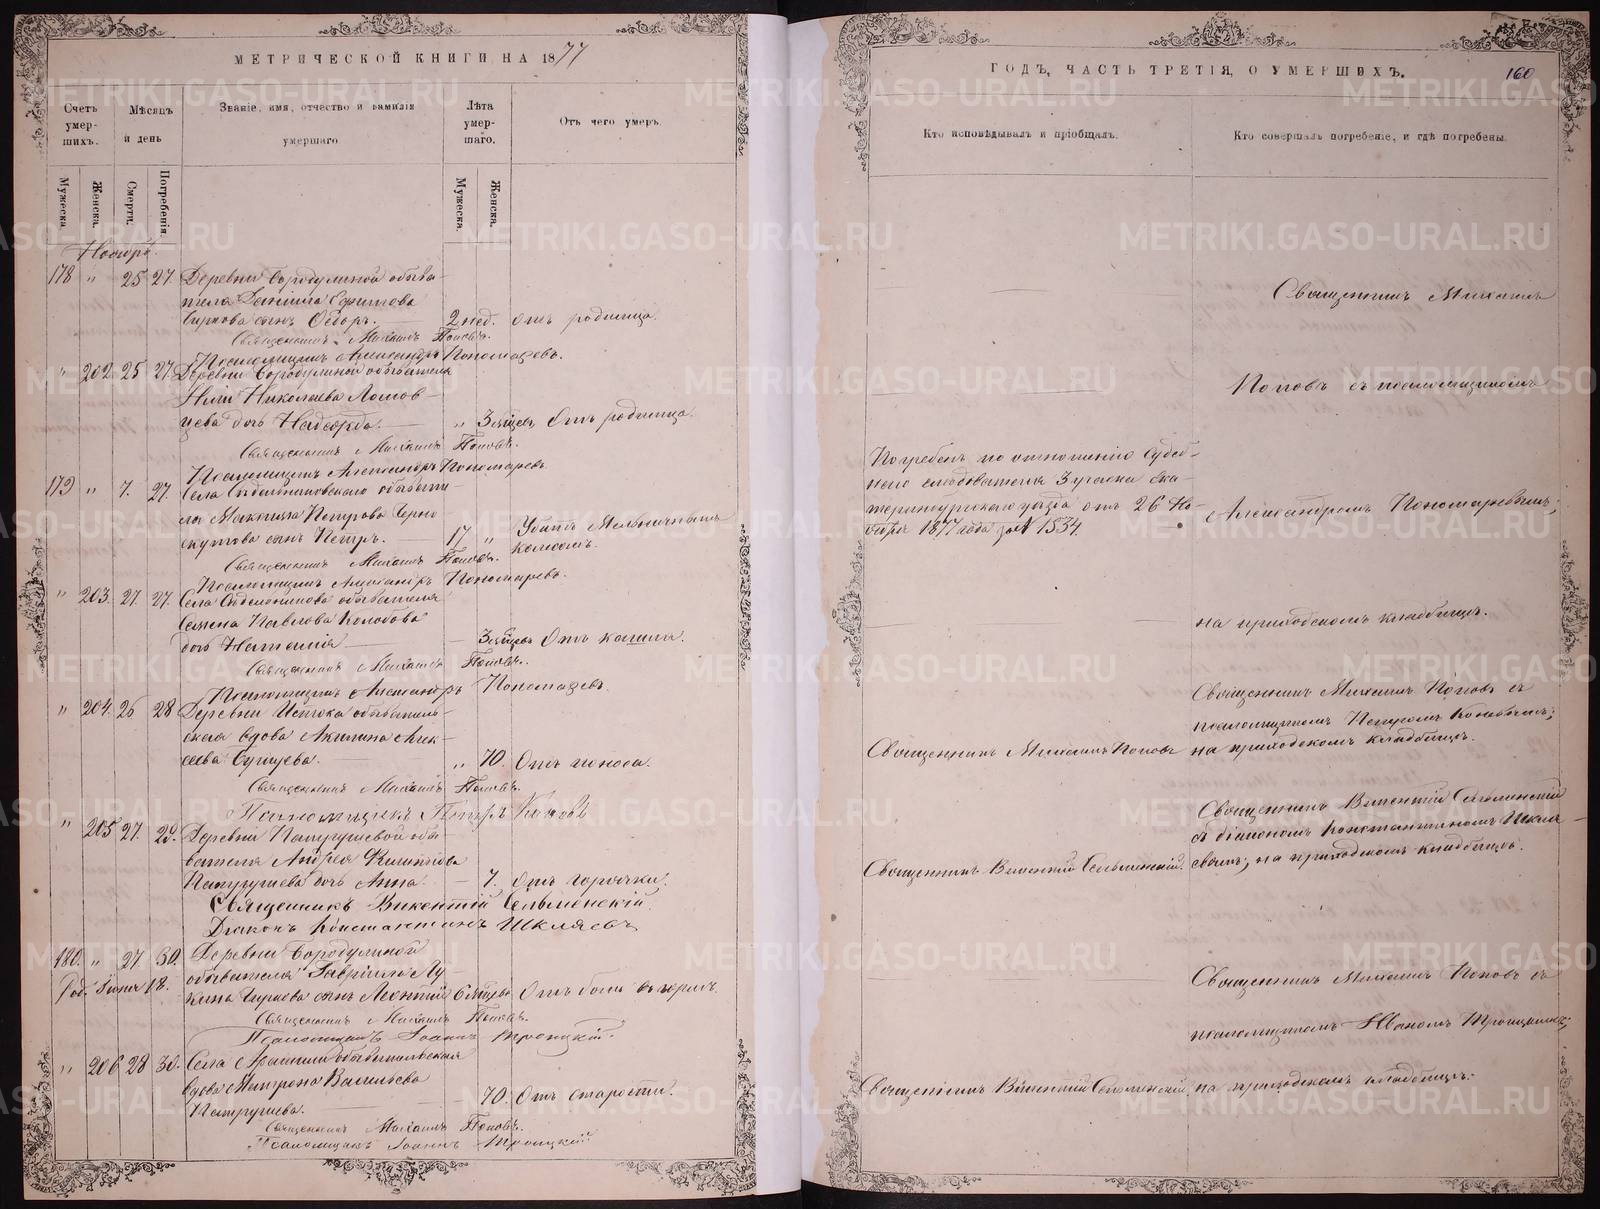 МЕТРИЧЕСКОЙ КНИГИ НА 1877
Счетъ умер-шихъ.
Мѣсяцъ и день
Званіе, имя, отчество и фамилія умершаго
Лѣта умер-шаго.
Отъ чего умеръ.
Мужеска.
Женска.
Смерти.
Погребенія.
Мужеска.
Женска.
Ноябрь.
178 " 25 27. Деревни Бородулиной обыва-
теля Даніила Ефимова
сынъ Ѳедоръ. 2 нед. отъ родимца.
Священникъ Михаилъ Поповъ.
Псаломщикъ Александръ Пономаревъ.
" 202 25 27. Деревни Бородулиной обывателя
Николаева
дочь Надежда. " 3 мѣсяц. Отъ родимца.
Священникъ Михаилъ Поповъ.
Псаломщикъ Александръ Пономаревъ.
179 " 7. 27. Села обывате-
ля Максима Петрова
сынъ Петръ. 17 " Убитъ Мельничнымъ
колесомъ.
Священникъ Михаилъ Поповъ.
Псаломщикъ Александръ Пономаревъ.
" 203. 27. 27. Села обывателя
Павлова Колобова
дочь 3 мѣсяц. Отъ кашля.
Священникъ Михаилъ Поповъ.
Псаломщикъ Александръ Пономаревъ.
" 204. 26 28 Деревни Истока обыватель-
ская вдова Акилина Алек-
сеева " 70. Отъ поноса.
Священникъ Михаилъ Поповъ.
Псаломщикъ Петръ Коновъ
" 205 27. 29. Деревни Патрушевой обы-
вателя Андрея Филиппова
Патрушева дочь Анна. 7. отъ горячки.
Священникъ Викентій Сельменскій.
Діаконъ Константинъ Шкляевъ
180. " 27 30. Деревни Бородулиной
Род. Іюня 18. обывателя Гавріила Лу-
кина сынъ Леонтій 6 мѣсяцевъ Отъ боли въ горлѣ.
Священникъ Михаилъ Поповъ.
Псаломщикъ Іоаннъ Троицкій.
" 206 28 30. Села обывательская
вдова Васильева
Патрушева. 70. Отъ старости.
Священникъ Михаилъ Поповъ.
Псаломщикъ Іоаннъ Троицкій
ГОДЪ, ЧАСТЬ ТРЕТІЯ, О УМЕРШИХЪ.
160
Кто исповѣдывалъ и пріобщалъ.
Кто совершалъ погребеніе, и гдѣ погребены.
Священникъ Михаилъ
Поповъ съ псаломщикомъ
Погребенъ по отношенію Судеб-
наго слѣдователя Ека-
теринбургскаго уѣзда отъ 26 Но-
ября 1877 года за № 1534.
Александромъ Пономаревымъ;
на приходскомъ кладбищѣ.
Священникъ Михаилъ Поповъ
Священникъ Михаилъ Поповъ съ
псаломщикомъ Петромъ Коновымъ;
на приходскомъ кладбищѣ.
Священникъ Викентій Сельменскій.
Священникъ Викентій Сельменскій
съ діакономъ Константиномъ Шкля-
евымъ; на приходскомъ кладбищѣ.
Священникъ Михаилъ Поповъ съ
псаломщикомъ Іваномъ Троицкимъ;
Священникъ Викентій Сельменскій
на приходскомъ кладбищѣ.
METRIKI.GASO-URAL.RU